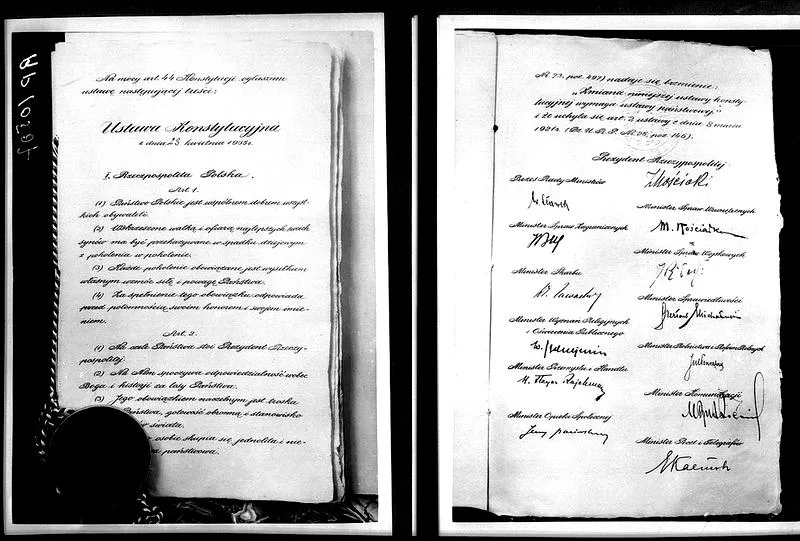 Na mocy art. 44 Konstytucji ogłaszam
ustawę następującej treści:
Ustawa Konstytucyjna
z dnia 23 kwietnia 1935 r.
I. Rzeczpospolita Polska.
Art. 1.
(1) Państwo Polskie jest wspólnem dobrem wszyst-
kich obywateli.
(2) Wskrzeszone walką i ofiarą najlepszych swoich
synów ma być przekazywane w spadku dziejowym
z pokolenia w pokolenie.
(3) Każde pokolenie obowiązane jest wysiłkiem
własnym wzmóc siłę i powagę Państwa.
(4) Za spełnienie tego obowiązku odpowiada
przed potomnością swoim honorem i swojem imie-
niem.
Art. 2.
(1) Na czele Państwa stoi Prezydent Rzeczy-
pospolitej.
(2) Na Nim spoczywa odpowiedzialność wobec
Boga i historji za losy Państwa.
(3) Jego obowiązkiem naczelnym jest troska
Państwa, gotowość obronną i stanowisko
świata.
osobie skupia się jednolita i nie-
państwowa.
Nr. 73, poz. 497) nadaje się brzmienie:
"Zmiana niniejszej ustawy konsty-
tucyjnej wymaga ustawy państwowej"
i że uchyla się art. 2 ustawy z dnia 8 marca
1921 r. (Dz. U. R. P. Nr. 26, poz. 146).
Prezydent Rzeczypospolitej
IMościcki
Prezes Rady Ministrów
Minister Spraw Wewnętrznych
Minister Spraw Zagranicznych
M. Kościałk
Minister Spraw Wojskowych
Minister Skarbu
Minister Sprawiedliwości
Minister Wyznań Religijnych
i Oświecenia Publicznego
Minister Rolnictwa i Reform Rolnych
Minister Przemysłu i Handlu
Minister Komunikacji
Minister Opieki Społecznej
Minister Poczt i Telegrafów